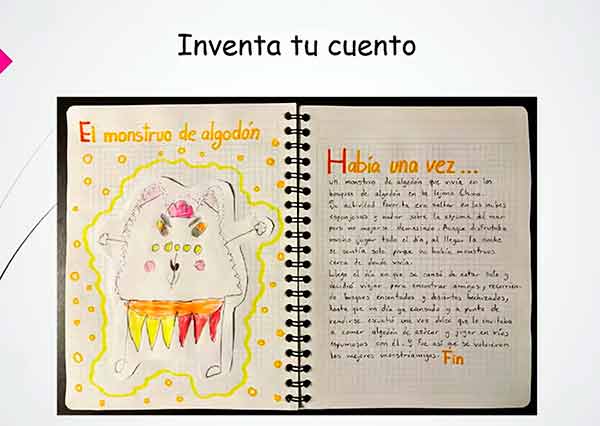 Inventa tu cuento
El monstruo de algodón
Había una vez...
un monstruo de algodón que vivía en los
bosques de algodón en la lejana China.
Su actividad favorita era saltar en las nubes
esponjosas y nadar sobre la espuma del mar
pero no mojarse demasiado. Aunque disfrutaba
mucho jugar todo el día, al llegar la noche
se sentía solo porque no había monstruos
cerca de donde vivía.
Llegó el día en que se cansó de estar solo y
decidió viajar para encontrar amigos, recorrien-
do bosques encantados y desiertos hechizados,
hasta que un día ya cansado y a punto de
rendirse escuchó una voz dulce que le invitaba
a comer algodón de azúcar y jugar en ríos
espumosos con él. Y fue así que se volvieron
los mejores monstruamigos. Fin